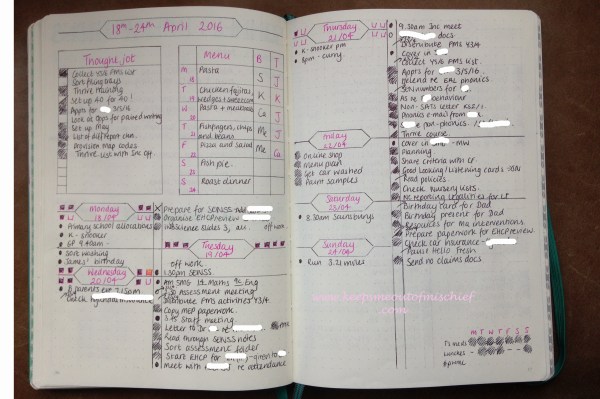 18th-24th April 2016
Thought jot
Collect Y5/6 PMS list
Sort filing Days
Thrive training
Set up 40 for 40!
Appts for 3/5/16
Look at Apps for paired writing
Set up May
List of different chan.
Argyllen map codes
Thrive list with Inc off
Menu B T
M 18 Pasta J
T 19 Chicken fajitas, wedges + sweetcorn S K
W 20 Pasta + meatballs K J
T 21 Fishfingers, chips and beans Ca J
F 22 Pizza and salad Me Ca
S 23 Fish pie
S 24 Roast dinner
Monday
18/04
Primary school allocations
K - snooker
GP 9.40am
Sort washing
James' birthday
Prepare for SENSS
Organise EHCP review
Inbscience slides 3,
off work
Tuesday
19/04
off work
1.30pm SENSS
Wednesday
20/04
Parents eve 3.15pm
Check Hyundai insurance
Am SMG 1t Maths 9t Eng
1.30 Assessment meeting
Distribute PMS activities Y3/4
Copy MEP paperwork.
3.45 Staff meeting
Letter to Dr
Read through SENSS notes
Sort assessment folder
Start EHCP for
meet with re attendance
Thursday
21/04
K - snooker pm
8pm - curry
Friday
22/04
Online shop
Menu plan
Get car washed
Paint samples
Saturday
23/04
8.30am Sainsburys
Sunday
24/04
Run 3.12 miles
9.30am Inc meet
docs
Distribute PMS Y3/4
Cover in
Collect Y5/6 PMS list.
Appts for 3/5/16.
re EAL phonics.
SEN numbers for
As re behaviour
Non-SATs letter KS2/1.
Phonics e-mail from
pm - phonics.
Thrive course
Cover in - MW
Planning
Share criteria with CF.
Good Looking/Listening cards
Read policies
Check Nursery lists.
RE reporting legalities for LT
Birthday card for Dad
Birthday present for Dad
Resources for Mu interventions.
Prepare paperwork for EHCP review.
Check car insurance
Pause Hello Fresh
Send no claims docs
www.keepimeoutofmischief
.com
M T W T F S S
Lunches